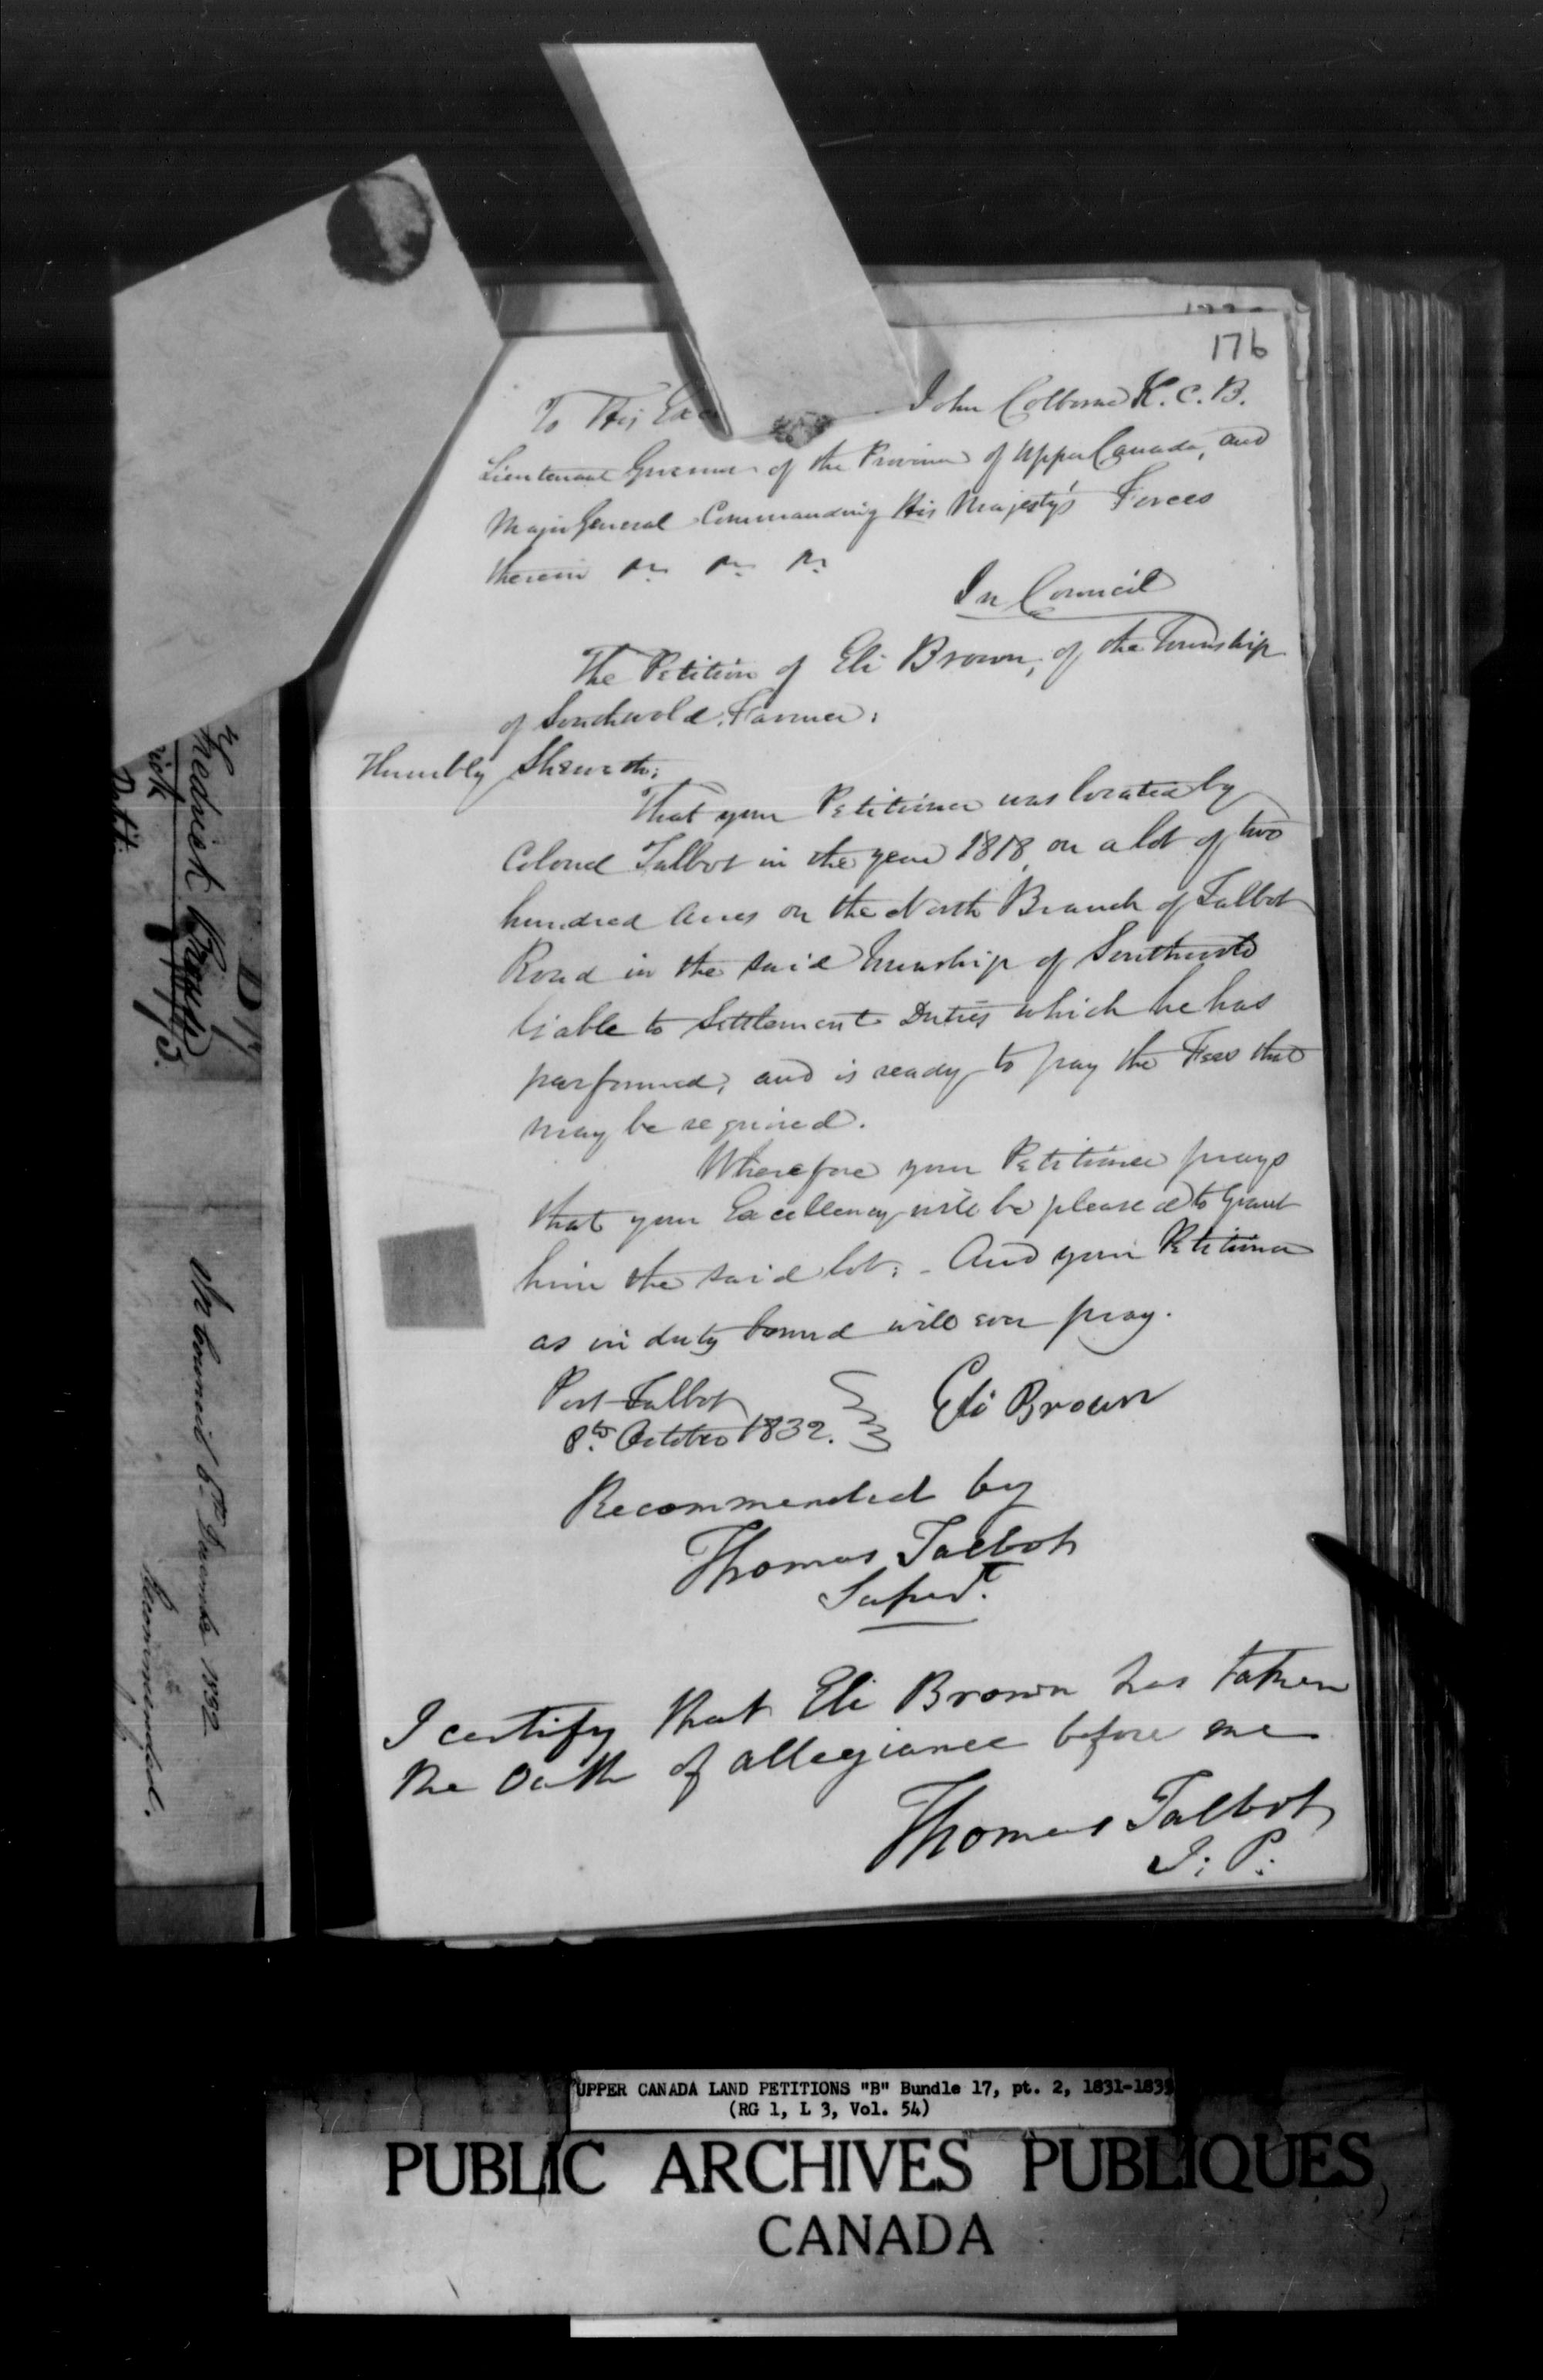 176
To His Exce
John Colborne K.C.B.
Lieutenant Governor of the Province of Upper Canada, and
Major General Commanding His Majesty's Forces
therein &c &c &c
In Council
The Petition of Eli Brown, of the Township
of Southwold, Farmer;
Humbly Sheweth;
That your Petitioner was located by
Colonel Talbot in the year 1818, on a lot of two
hundred Acres on the North Branch of Talbot
Road in the said Township of Southwold
liable to Settlement Duties which he has
performed, and is ready to pay the Fees that
may be required.
Wherefore your Petitioner prays
that your Excellency will be pleased to Grant
him the said lot: - And your Petitioner
as in duty bound will ever pray.
Port Talbot
8th October 1832.
Eli Brown
Recommended by
Thomas Talbot
Supedt.
I certify that Eli Brown has taken
the Oath of allegiance before me
Thomas Talbot
J: P:
In Council 6th December 1832
Recommended.
UPPER CANADA LAND PETITIONS "B" Bundle 17, pt. 2, 1831-1833
(RG 1, L 3, Vol. 54)
PUBLIC ARCHIVES PUBLIQUES
CANADA